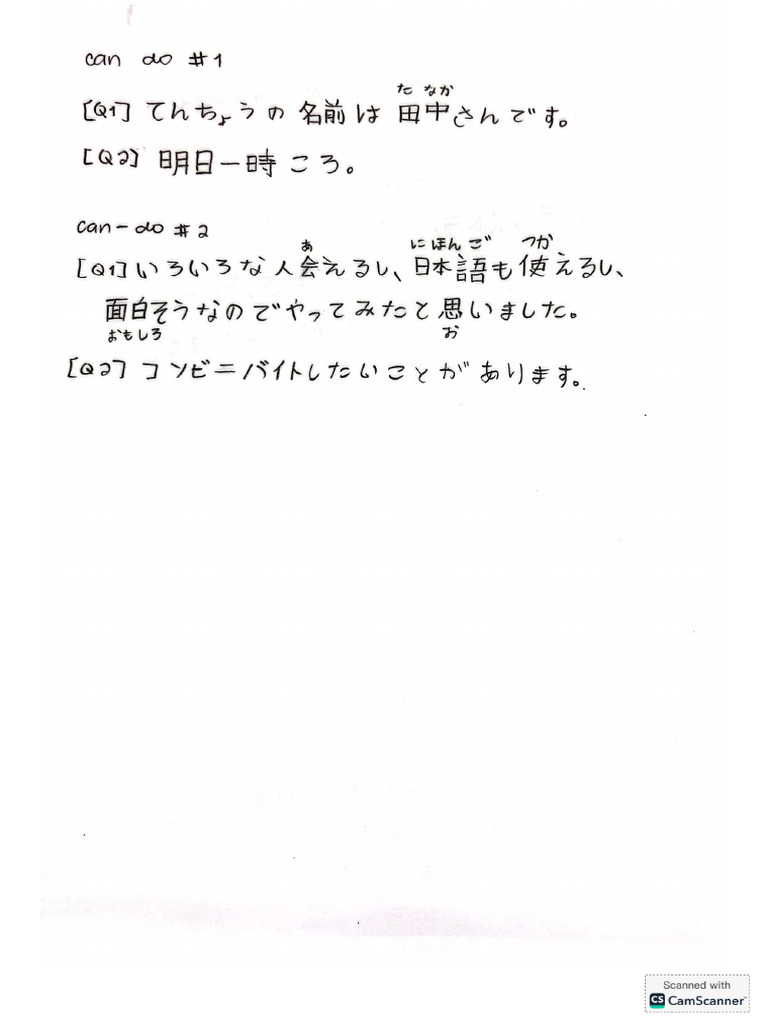 can do #1
たなか
[Q1] てんちょうの名前は田中さんです。
[Q2] 明日一時ころ。
can-do #2
あ にほんご つか
[Q1] いろいろな人会えるし、日本語も使えるし、
面白そうなのでやってみたと思いました。
おもしろ お
[Q2] コンビニバイトしたいことがあります。
Scanned with
CS CamScanner